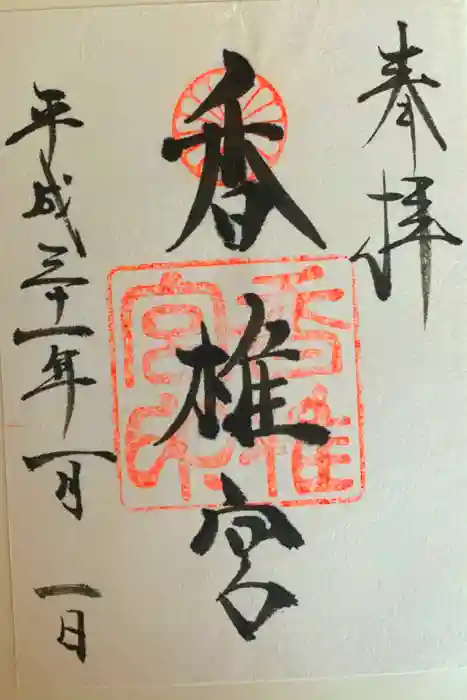 奉拝
香椎宮
平成三十一年一月一日
香椎宮印